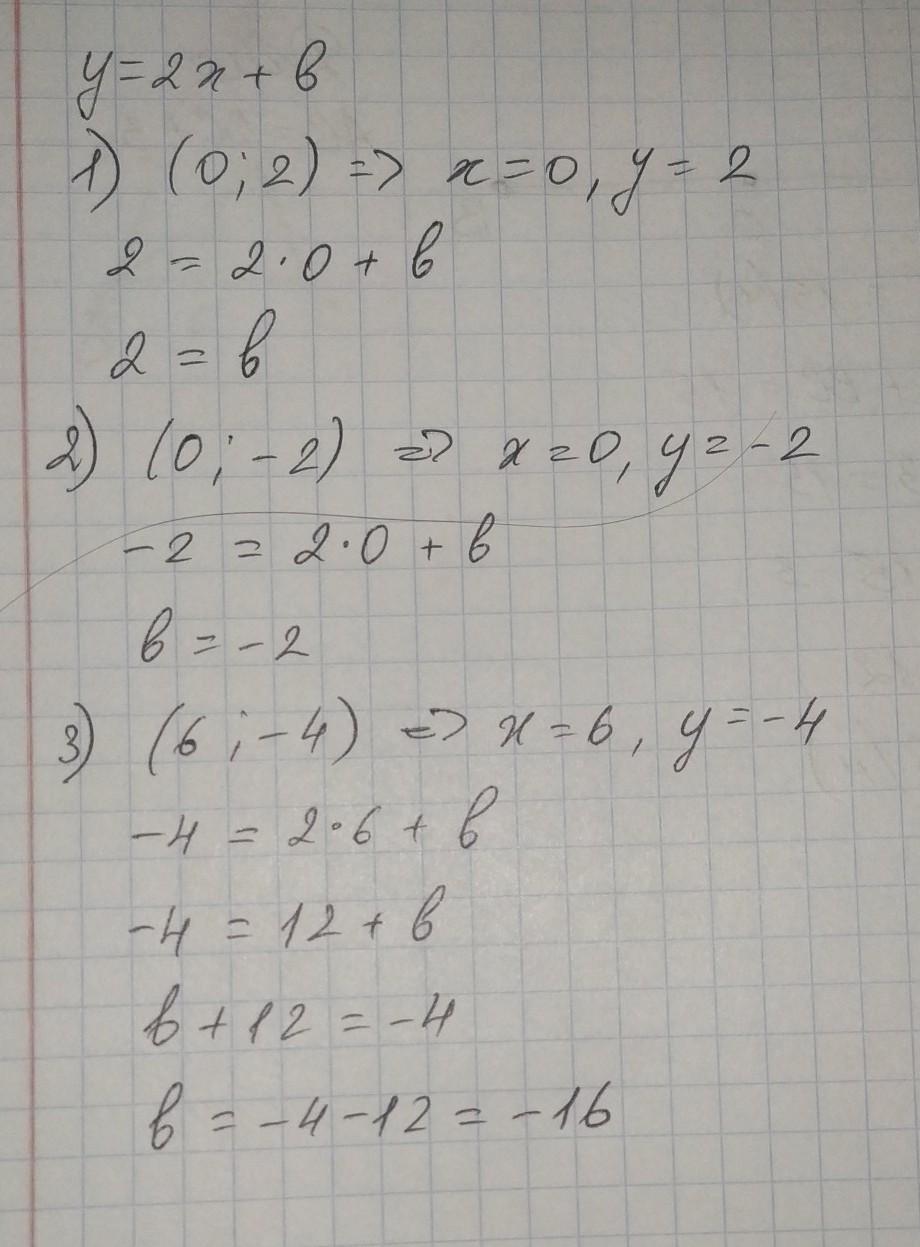 y=2x+b
1) (0;2) => x=0, y=2
2=2·0+b
2=b
2) (0;-2) => x=0, y=-2
-2=2·0+b
b=-2
3) (6;-4) => x=6, y=-4
-4=2·6+b
-4=12+b
b+12=-4
b=-4-12=-16